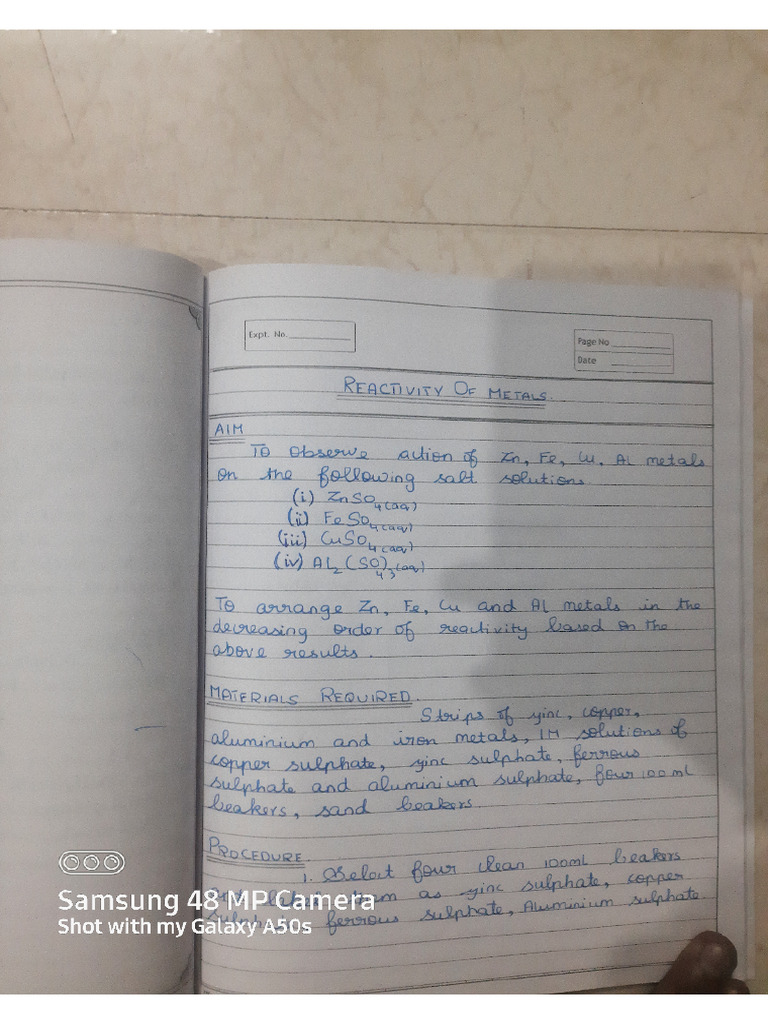 Expt. No.
Page No
Date
REACTIVITY OF METALS.
AIM
To observe action of Zn, Fe, Cu, Al metals
on the following salt solutions.
(i) ZnSO4(aq)
(ii) FeSO4(aq)
(iii) CuSO4(aq)
(iv) Al2(SO4)3(aq)
To arrange Zn, Fe, Cu and Al metals in the
decreasing order of reactivity based on the
above results.
MATERIALS REQUIRED.
Strips of zinc, copper,
aluminium and iron metals, 1M solutions of
copper sulphate, zinc sulphate, ferrous
sulphate and aluminium sulphate, four 100 ml
beakers, sand beakers.
PROCEDURE.
1. Select four clean 100ml beakers
them as zinc sulphate, copper
ferrous sulphate, Aluminium sulphate
Samsung 48 MP Camera
Shot with my Galaxy A50s